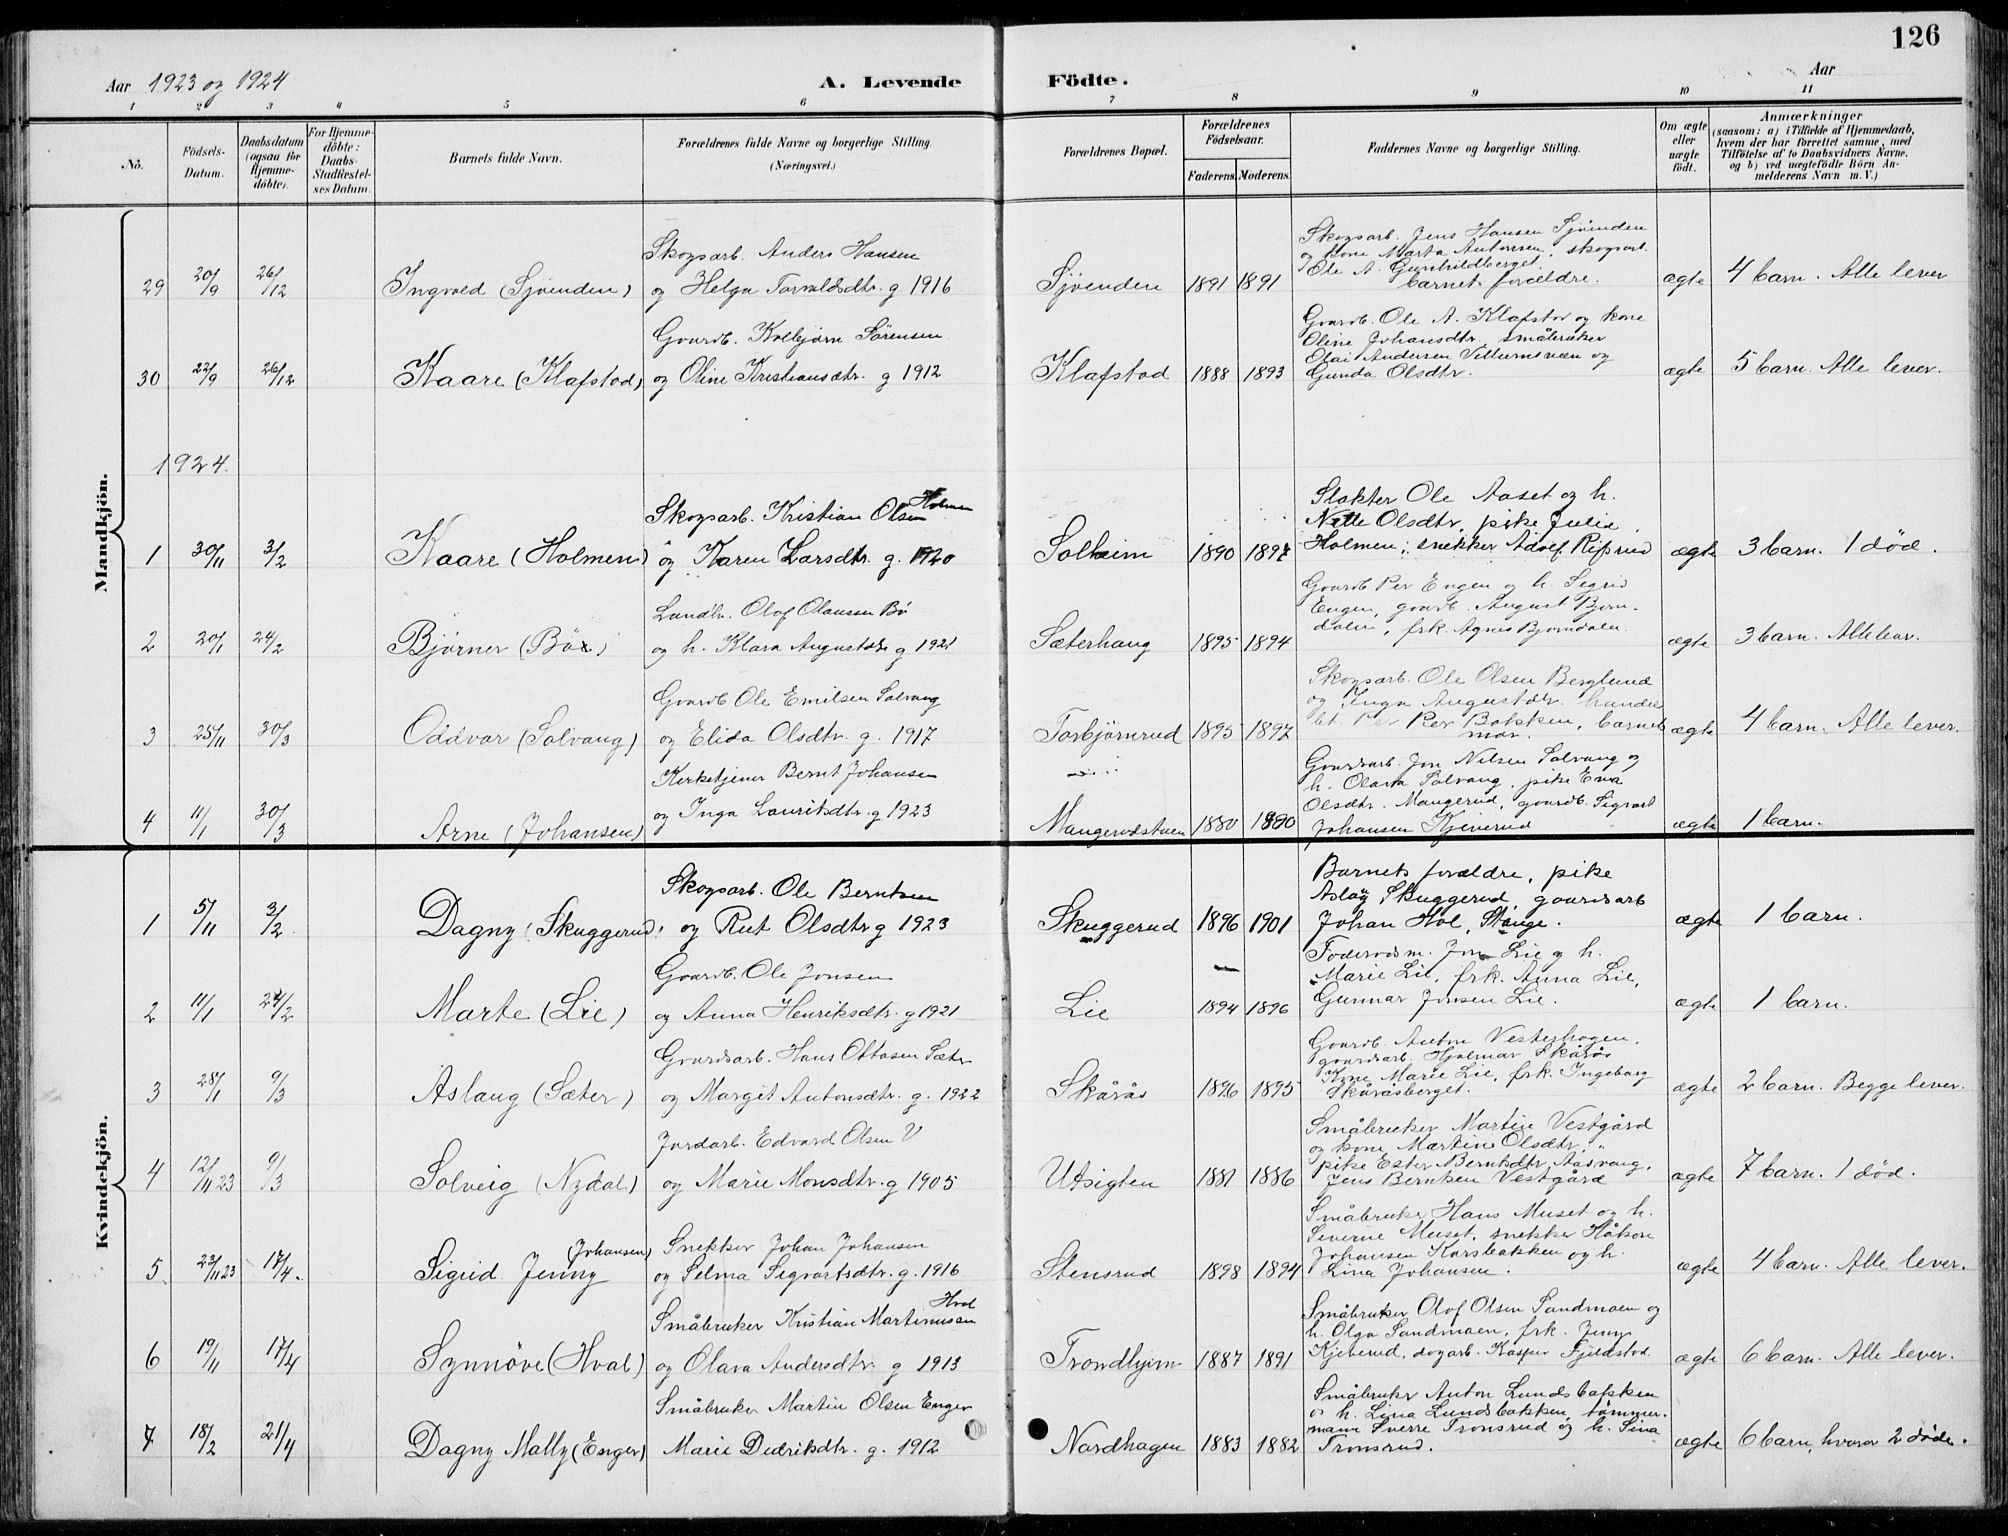 126
Aar 1923 og 1924
A. Levende Födte.
Aar
1 2 3 4 5 6 7 8 9 10 11
No.
Födsels-Datum.
Daabsdatum (ogsaa for Hjemme-döbte).
For Hjemme-döbte: Daabs-Stadfæstel-ses Datum.
Barnets fulde Navn.
Forældrenes fulde Navne og borgerlige Stilling.
(Næringsvei.)
Forældrenes Bopæl.
Forældrenes Födselsaar.
Faderens. Moderens.
Faddernes Navne og borgerlige Stilling.
Om ægte eller uægte födt.
Anmærkninger
(saasom: a) i Tilfælde af Hjemmedaab, hvem der har forrettet samme, med Tilföielse af to Daabsvidners Navne, og b) ved uægtefödte Börn An-melderens Navn m. V.)
Mandkjön.
29 20/9 26/12 Ingvald (Sjøenden)
Skogsarb. Anders Hansen
og Helga Torvaldsdtr. g 1916
Sjøenden 1891 1891
Skogsarb. Jens Hansen Sjøenden
og kone Marta Antonsen, skogsarb.
Ole A. Gunhildberget,
barnets forældre.
ægte 4 barn. Alle lever
30 22/9 26/12 Kaare (Klafstad)
Gaardb. Kolbjørn Sørensen
og Oline Kristiansdtr. g 1912
Klafstad 1888 1893
Gaardb. Ole A. Klafstad og kone
Oline Johansdtr, småbruker
Olai Andersen og
Gunda Olsdtr.
ægte 5 barn. Alle lever.
1924.
1 30/11 3/2 Kaare (Holmen)
Skogsarb. Kristian Olsen Holmen
og Karen Larsdtr. g. 1920
Solheim 1890 1897
Slakter Ole Aaset og h.
Olsdtr, pike Julie
Holmen, snekker Adolf
ægte 3 barn. 1 død.
2 20/1 24/2 Bjørner (Bø)
Landh. Olof Olaussen Bø
og h. Klara Augustdtr g 1921
Sæterhaug 1895 1894
Gaardb Per Engen og h. Sigrid
Engen, gaardb. August Bjørn-
dalen, frk. Agnes Bjørndalen.
ægte 3 barn. Alle lever.
3 25/11 30/3 Oddvar (Solvang)
Gaardb Ole Emilsen Solvang
og Elida Olsdtr. g. 1917
Torbjørnrud 1895 1897
Skogsarb. Ole Olsen Berglund
og Inga Augustdtr. handels
bt. Per Bakken, barnets
mor.
ægte 4 barn. Alle lever.
4 11/1 30/3 Arne (Johansen)
Kirketjener Bernt Johansen
og Inga Lauritsdtr. g 1923
Mangerudstuen 1880 1890
Gaardsarb. Jon Nilsen Solvang og
h. Olava Solvang, pike Eva
Olsdtr. Mangerud, gaardb. Sigvart
Johansen Kjeverud
ægte 1 barn.
Kvindekjön.
1 5/11 3/2 Dagny (Skuggerud)
Skogsarb. Ole Berntsen
og Rut Olsdtr g 1923
Skuggerud 1896 1901
Barnets forældre, pike
Aslaug Skuggerud, gaardsarb
Johan Hol, Stange.
ægte 1 barn.
2 11/1 24/2 Marte (Lie)
Gaardb. Ole Jonsen
og Anna Henriksdtr. g 1921
Lie 1894 1896
Foderaadsm. Jon Lie og h.
Marie Lie, frk. Anna Lie,
Gunnar Jonsen Lie.
ægte 1 barn.
3 28/1 9/3 Aslaug (Sæter)
Gaardsarb. Hans Ottosen Sæter
og Margit Antonsdtr. g. 1922
Skårås 1896 1895
Gaardb. Anton Vesterhagen,
gaardsarb. Hjalmar Skårås
Kone Marie Lie, frk. Ingeborg
Skåråsberget.
ægte 2 barn. Begge lever.
4 12/11 23 9/3 Solveig (Nydal)
Jordarb. Edvard Olsen V
og Marie Monsdtr. g 1905
Utsigten 1881 1886
Småbruker Martin Vestgård
og kone Martine Olsdtr, "
pike Ester Berntsdtr Aasvang,
Jens Berntsen Vestgård
ægte 7 barn. 1 død.
5 23/11 23 17/4. Sigrid Jenny (Johansen)
Snekker Johan Johansen
og Selma Sigvartsdtr. g. 1916
Stensrud 1898 1894
Småbruker Hans Muset og h.
Severine Muset, snekker Håkon
Johansen Korsbakken og h.
Lina Johansen.
ægte 4 barn. Alle lever.
6 19/11 17/4 Synnøve (Hval)
Småbruker Kristian Martinussen Hval
og Olava Andersdtr. g 1913
Trondhjem 1887 1891
Småbruker Olof Olsen Sandmoen og
h. Olga Sandmoen, frk. Jenny
Kjeverud, dagarb. Kasper Fjeldstad.
ægte 6 barn. Alle lever.
7 18/2 21/4 Dagny Mally (Enger)
Småbruker Martin Olsen Enger
Marie Didriksdtr. g. 1912
Nordhagen 1883 1882
Småbruker Anton Lundsbakken
og h. Lina Lundsbakken, tømmer-
mann Sverre Tronsrud og h. Sina
Tronsrud.
ægte 6 barn, hvorav 2 døde.